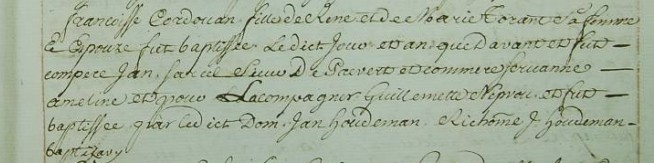 francoisse Cordouan fille de Rene et de Marie Corant sa femme
Et Espouze fut baptissée Ledict Jour et an que davant et fut
compere Jan Sieur De Prevert et commere servanne
ameline et pour Lacompagner Guillemette Neprou et fut
baptissée par ledict Dom Jan Houdeman Richome J. Houdeman